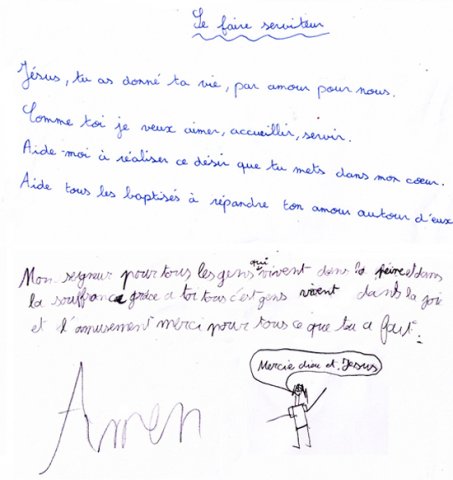 Se faire serviteur
Jésus, tu as donné ta vie, par amour pour nous.
Comme toi je veux aimer, accueillir, servir.
Aide-moi à réaliser ce désir que tu mets dans mon cœur.
Aide tous les baptisés à répandre ton amour autour d'eux
Mon seigneur pour tous les gens qui vivent dans la peine et dans
la souffrance grâce a toi tous c'est gens vivent dans la joie
et l'amusement merci pour tous ce que tu a fait.
Mercie dieu et Jesus
Amen